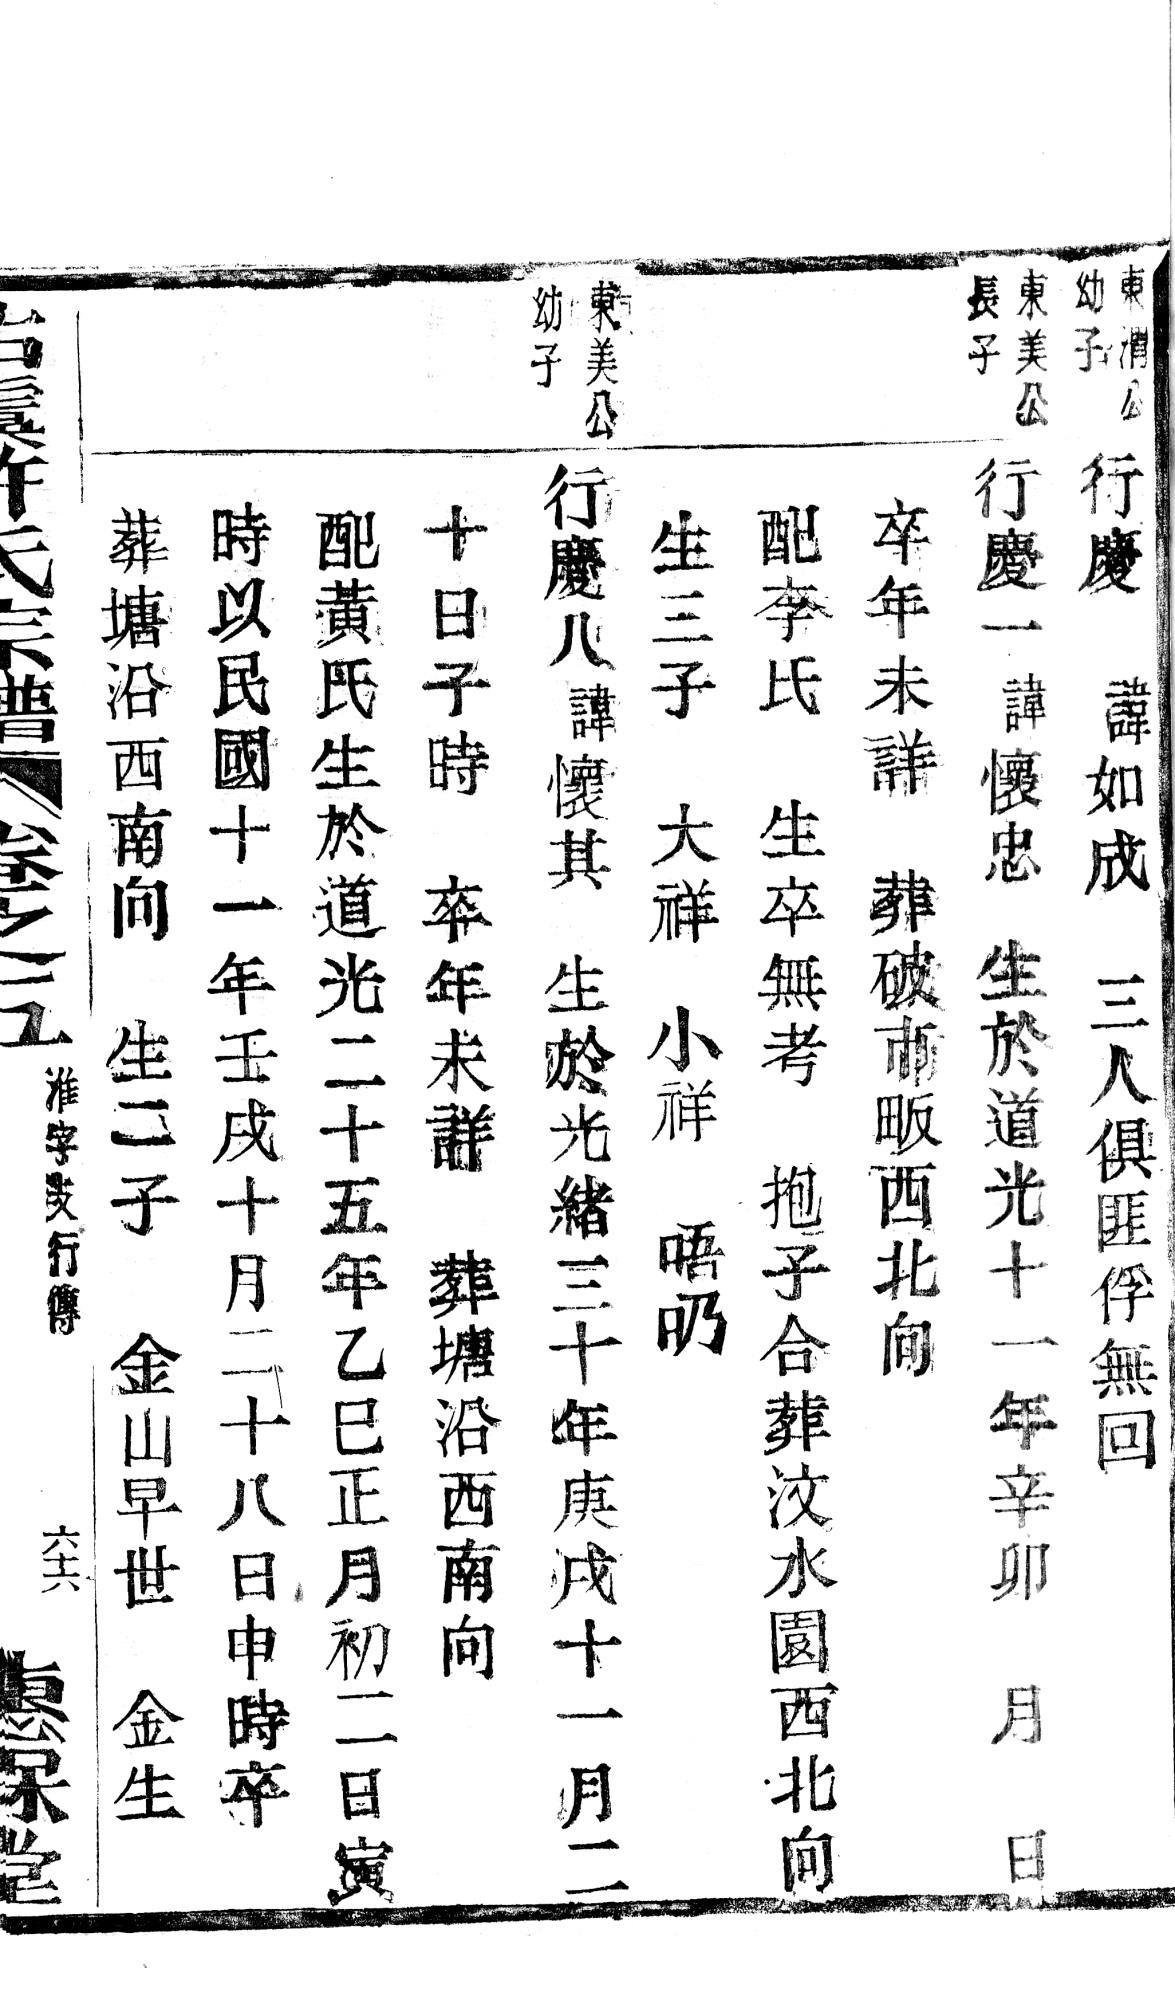 東渭公
幼子
行慶　諱如成　三人俱匪俘無回
東美公
長子
行慶一諱懷忠　生於道光十一年辛卯　月　日
卒年未詳　葬破畈西北向
配李氏　生卒無考　抱子合葬汶水園西北向
生三子　大祥　小祥　唔叨
東美公
幼子
行慶八諱懷其　生於光緒三十年庚戌十一月二
十日子時　卒年未詳　葬塘沿西南向
配黃氏生於道光二十五年乙巳正月初二日寅
時以民國十一年壬戌十月二十八日申時卒
葬塘沿西南向　生二子　金山早世　金生
氏宗譜　卷之二五　淮字支行傳　六十六　惠保堂